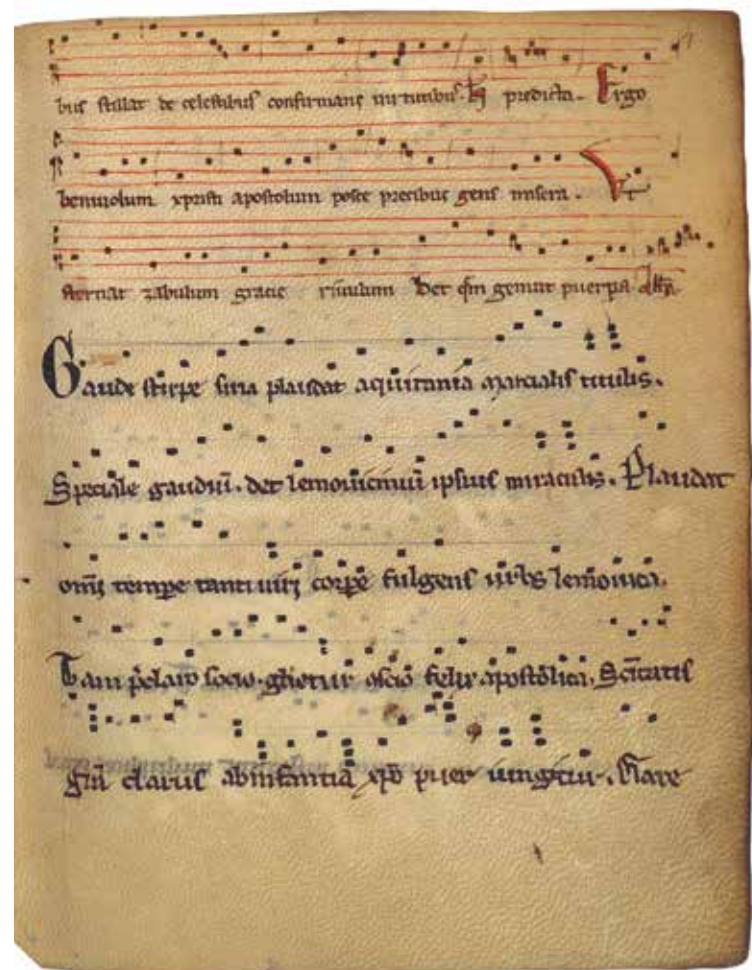 bus stillat de celestibus confirmans virtutibus. predicta. Ergo
benivolum xpristi apostolum posce precibus gens misera. Vt
sternat zabulum gracie rivulum det gemint puerpa
Gaude stirpe siria plaudat aquitania marcialis titulis.
Speciale gaudiũ. det lemouicinũ ipsius miraculis. Plaudat
tempe tanti uiri corpe fulgens urbs lemouica.
Tam pclaro socio. felix apostolica. Scitatis
grã clarus ab infantia xpo puer iungitur. Nare